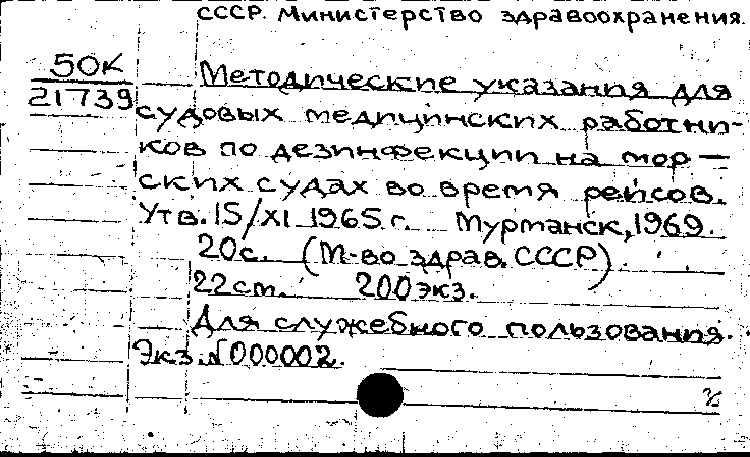 СССР. Министерство здравоохранения.
50К
21739
Методические указания для
судовых медицинских работни-
ков по дезинфекции на мор—
ских судах во время рейсов.
Утв. 15/XI 1965 г. Мурманск, 1969.
20с. (М-во здрав. СССР).
22см. 200экз.
Для служебного пользования.
Экз. №000002.